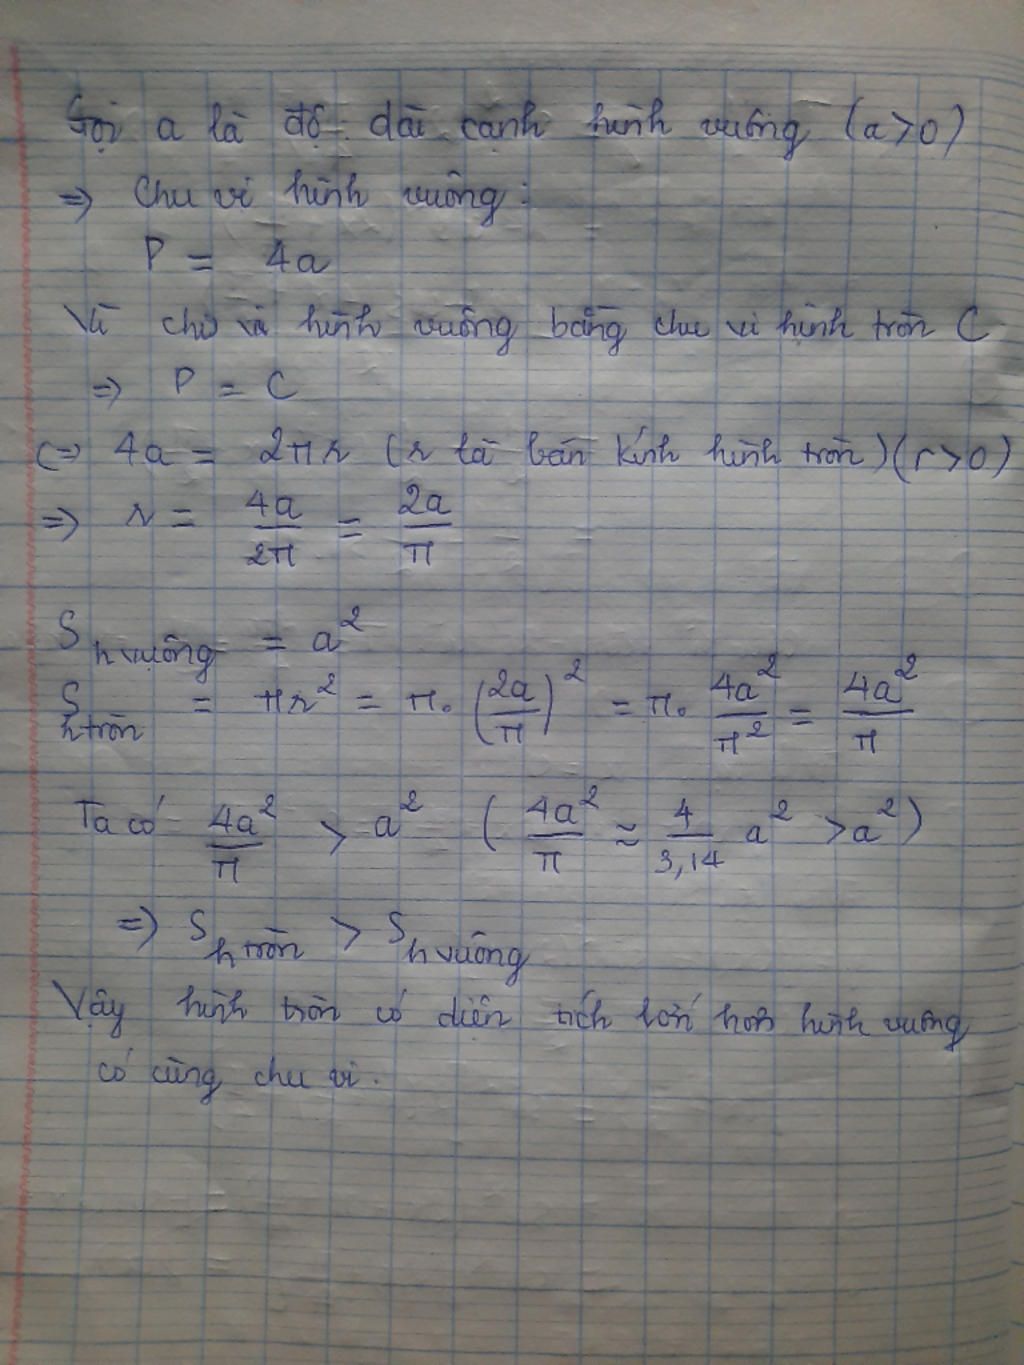 Gọi a là độ dài cạnh hình vuông (a>0)
=> Chu vi hình vuông:
P = 4a
Vì chu vi hình vuông bằng chu vi hình tròn C
=> P = C
<=> 4a = 2πr (r là bán kính hình tròn)(r>0)
=> r = 4a/2π = 2a/π
S h vuông = a²
S h tròn = πr² = π.(2a/π)² = π.4a²/π² = 4a²/π
Ta có 4a²/π > a² (4a²/π ≈ 4/3,14 a² > a²)
=> S h tròn > S h vuông
Vậy hình tròn có diện tích lớn hơn hình vuông
có cùng chu vi.